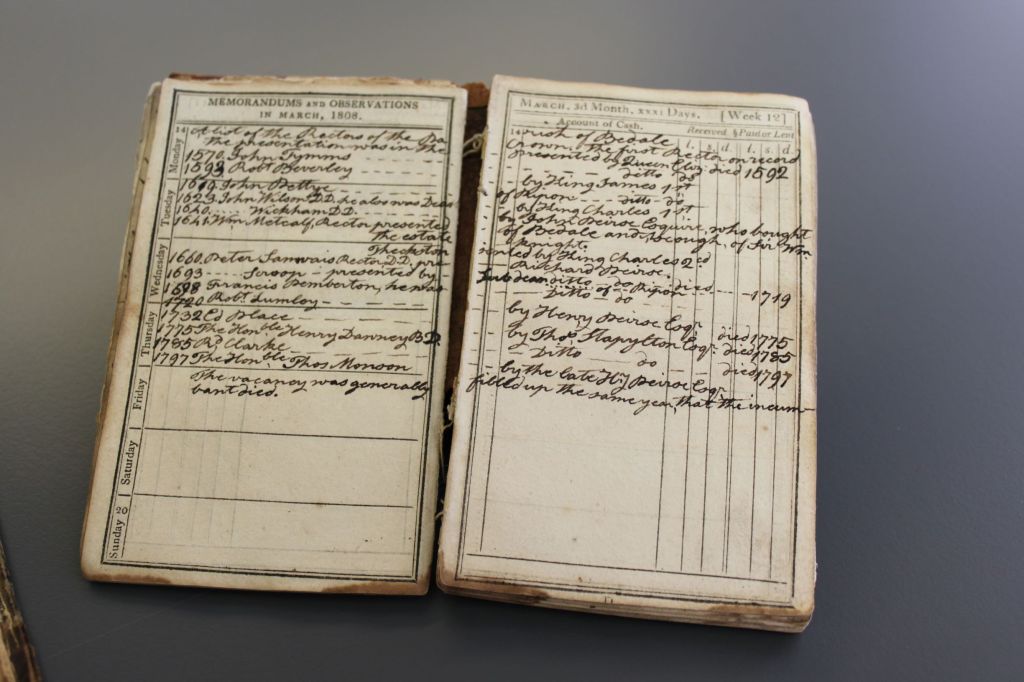 MEMORANDUMS AND OBSERVATIONS
IN MARCH, 1808.
14 Monday
A list of the Rectors of the Pa
the presentation was in the
1570. John Tymms
1592 Robt Beverley
Tuesday
1619 John Pettye
1623. John Wilson D.D. he also was Dean
1620. Wickham D.D.
1641. Wm Metcalf, Rector presented
the estate
Wednesday
Theakston
1660. Peter Samwais Rector D.D. pre
1693 Scroop - presented by
1698 Francis Pemberton, he was
1720 Robt Lumley
Thursday
1732 Ed Place
1775 The Honble Henry Dawney B.D.
1785 Rd Clarke
1797 The Honble Thos Monson
Friday
The vacancy was generally
bant died.
Saturday
Sunday 20
MARCH, 3d Month, XXXI Days. [Week 12]
Account of Cash. Received Paid or Lent
l. s. d. l. s. d.
14 rish of Bedale
Crown. The first Rector on record
presented by Queen Eliz: died 1592
ditto do
by King James 1st
of Ripon ditto do
by King Charles 1st
by John Peirse Esquire, who bought
of Bedale and, of Sir Wm
knight.
sented by King Charles 2d
Richard Peirse.
Subdean ditto do Ripon died
Ditto of do 1719
by Henry Peirse Esqr died 1775
by Thos Stapylton Esqr died 1785
Ditto do died 1797
by the late Hy Peirse Esqr
filled up the same year, that the incum-